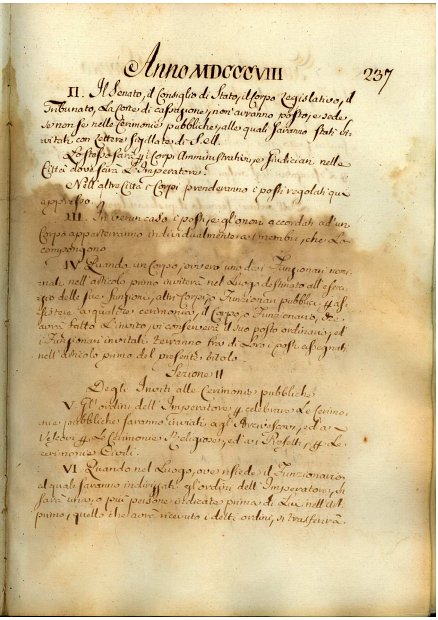 Anno MDCCCVIII
237
II. Il Senato, il Consiglio di Stato, il Corpo Legislativo, il
Tribunato, La Corte di cassazione, non avranno posto, e sede,
se non se nelle Cerimonie pubbliche, alle quali saranno stati in-
vitati con Lettere sigillate di S. M.
Lo stesso sarà pei Corpi Amministrativi, e Giudiciari nelle
Città dove sarà l'Imperatore.
Nell'altre Città i Corpi prenderanno i posti regolati qui
appresso.
III. In verun caso i posti, e gli onori accordati ad un
Corpo apparteranno individualmente ai membri, che Lo
compongono.
IV Quando un Corpo, ovvero uno dei Funzionari nomi-
nati nell'articolo primo inviterà nel Luogo destinato all'eser-
cizio delle sue funzioni, altri Corpi, o Funzionari pubblici per as-
sistere a qualche cerimonia, il Corpo, o Funzionario, che
avrà fatto l'invito, vi conserverà il suo posto ordinario, ed
i Funzionari invitati serveranno fra di Loro i posti assegnati
nell'articolo primo del presente titolo.
Sezione II
Degli Inviti alle Cerimonie pubbliche
V Gl'ordini dell'Imperatore per celebrare Le Cerimo-
nie pubbliche saranno inviati agli Arcivescovi, ed ai
Vescovi per Le Cerimonie Religiose, ed ai Prefetti, per Le
cerimonie Civili.
VI Quando nel Luogo, ove risiede il Funzionario,
al quali saranno indirizzati gl'ordini dell'Imperatore, vi
sarà una, o più persone indicate prima di Lui nell'Art.
primo, quello che avrà ricevuto i detti ordini, si trasferirà